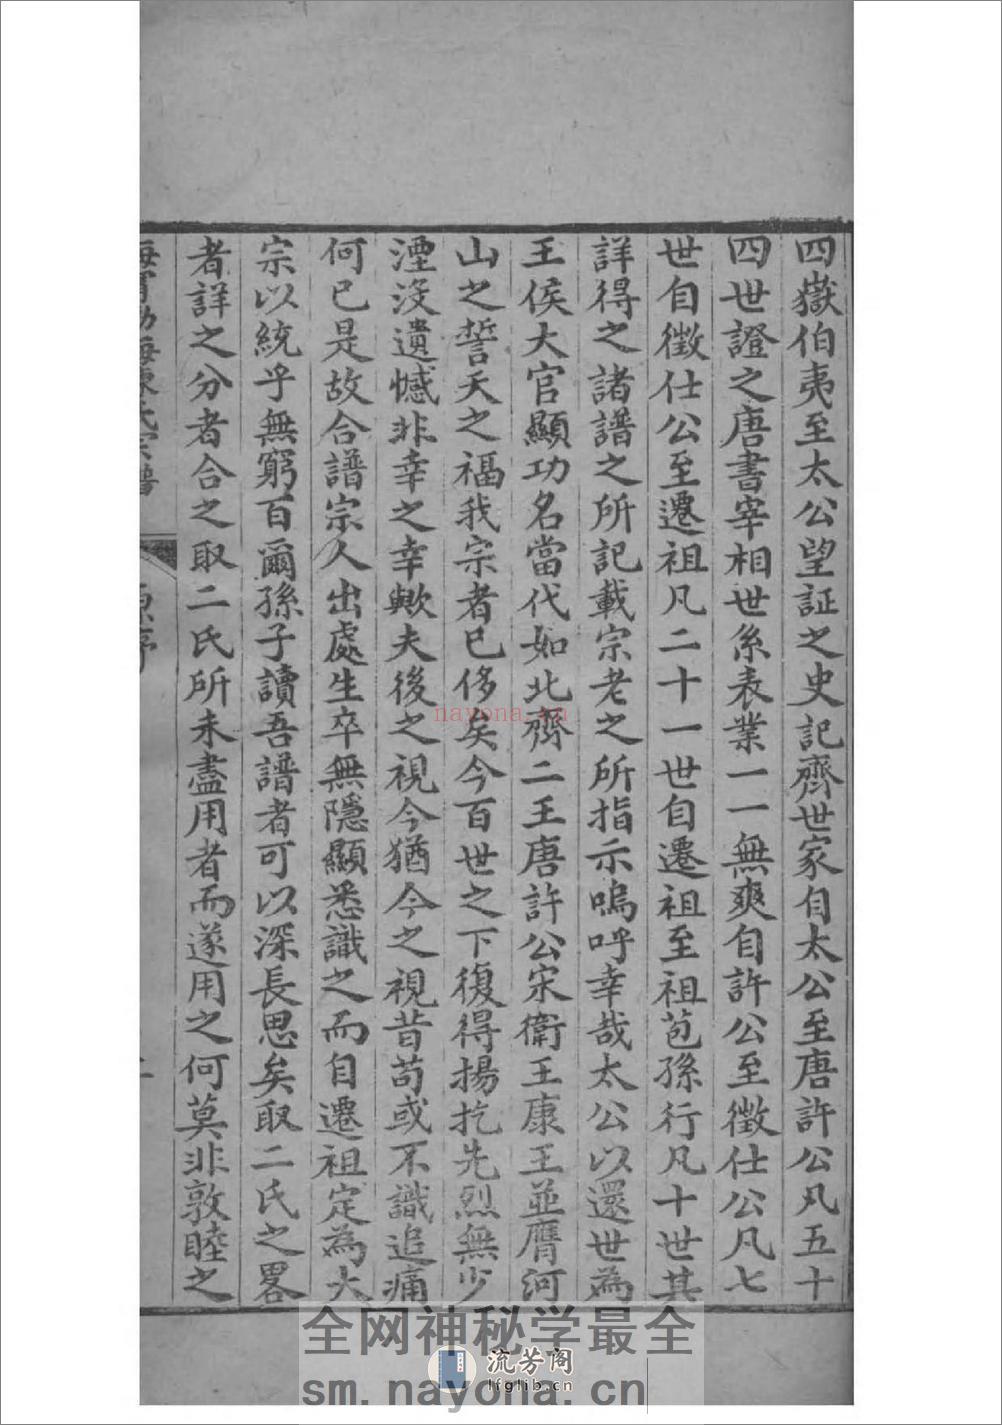 四嶽伯夷至太公望証之史記齊世家自太公至唐許公凡五十
四世證之唐書宰相世系表業一一無爽自許公至徵仕公凡七
世自徵仕公至遷祖凡二十一世自遷祖至祖苞孫行凡十世其
詳得之諸譜之所記載宗老之所指示嗚呼幸哉太公以還世為
王侯大官顯功名當代如北齊二王唐許公宋衛王康王並膺河
山之誓天之福我宗者已侈矣今百世之下復得揚扢先烈無少
湮沒遺憾非幸之幸歟夫後之視今猶今之視昔苟或不識追痛
何已是故合譜宗人出處生卒無隱顯悉識之而自遷祖定為大
宗以統乎無窮百爾孫子讀吾譜者可以深長思矣取二氏之畧
者詳之分者合之取二氏所未盡用者而遂用之何莫非敦睦之
海寧渤海陳氏宗譜
原序
二
nayona.cn
全网神秘学最全
流芳阁
lfglib.cn
sm.nayona.cn